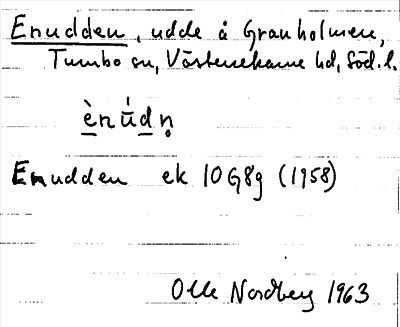 Enudden, udde å Granholmen,
Tumbo sn, Västerrekarne hd, Söd. l.
ènúdn̥
Enudden ek 10G8g (1958)
Olle Nordberg 1963